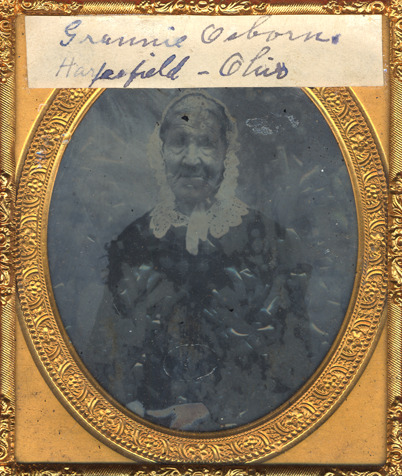 Grannie Osborn.
Harpersfield - Ohio